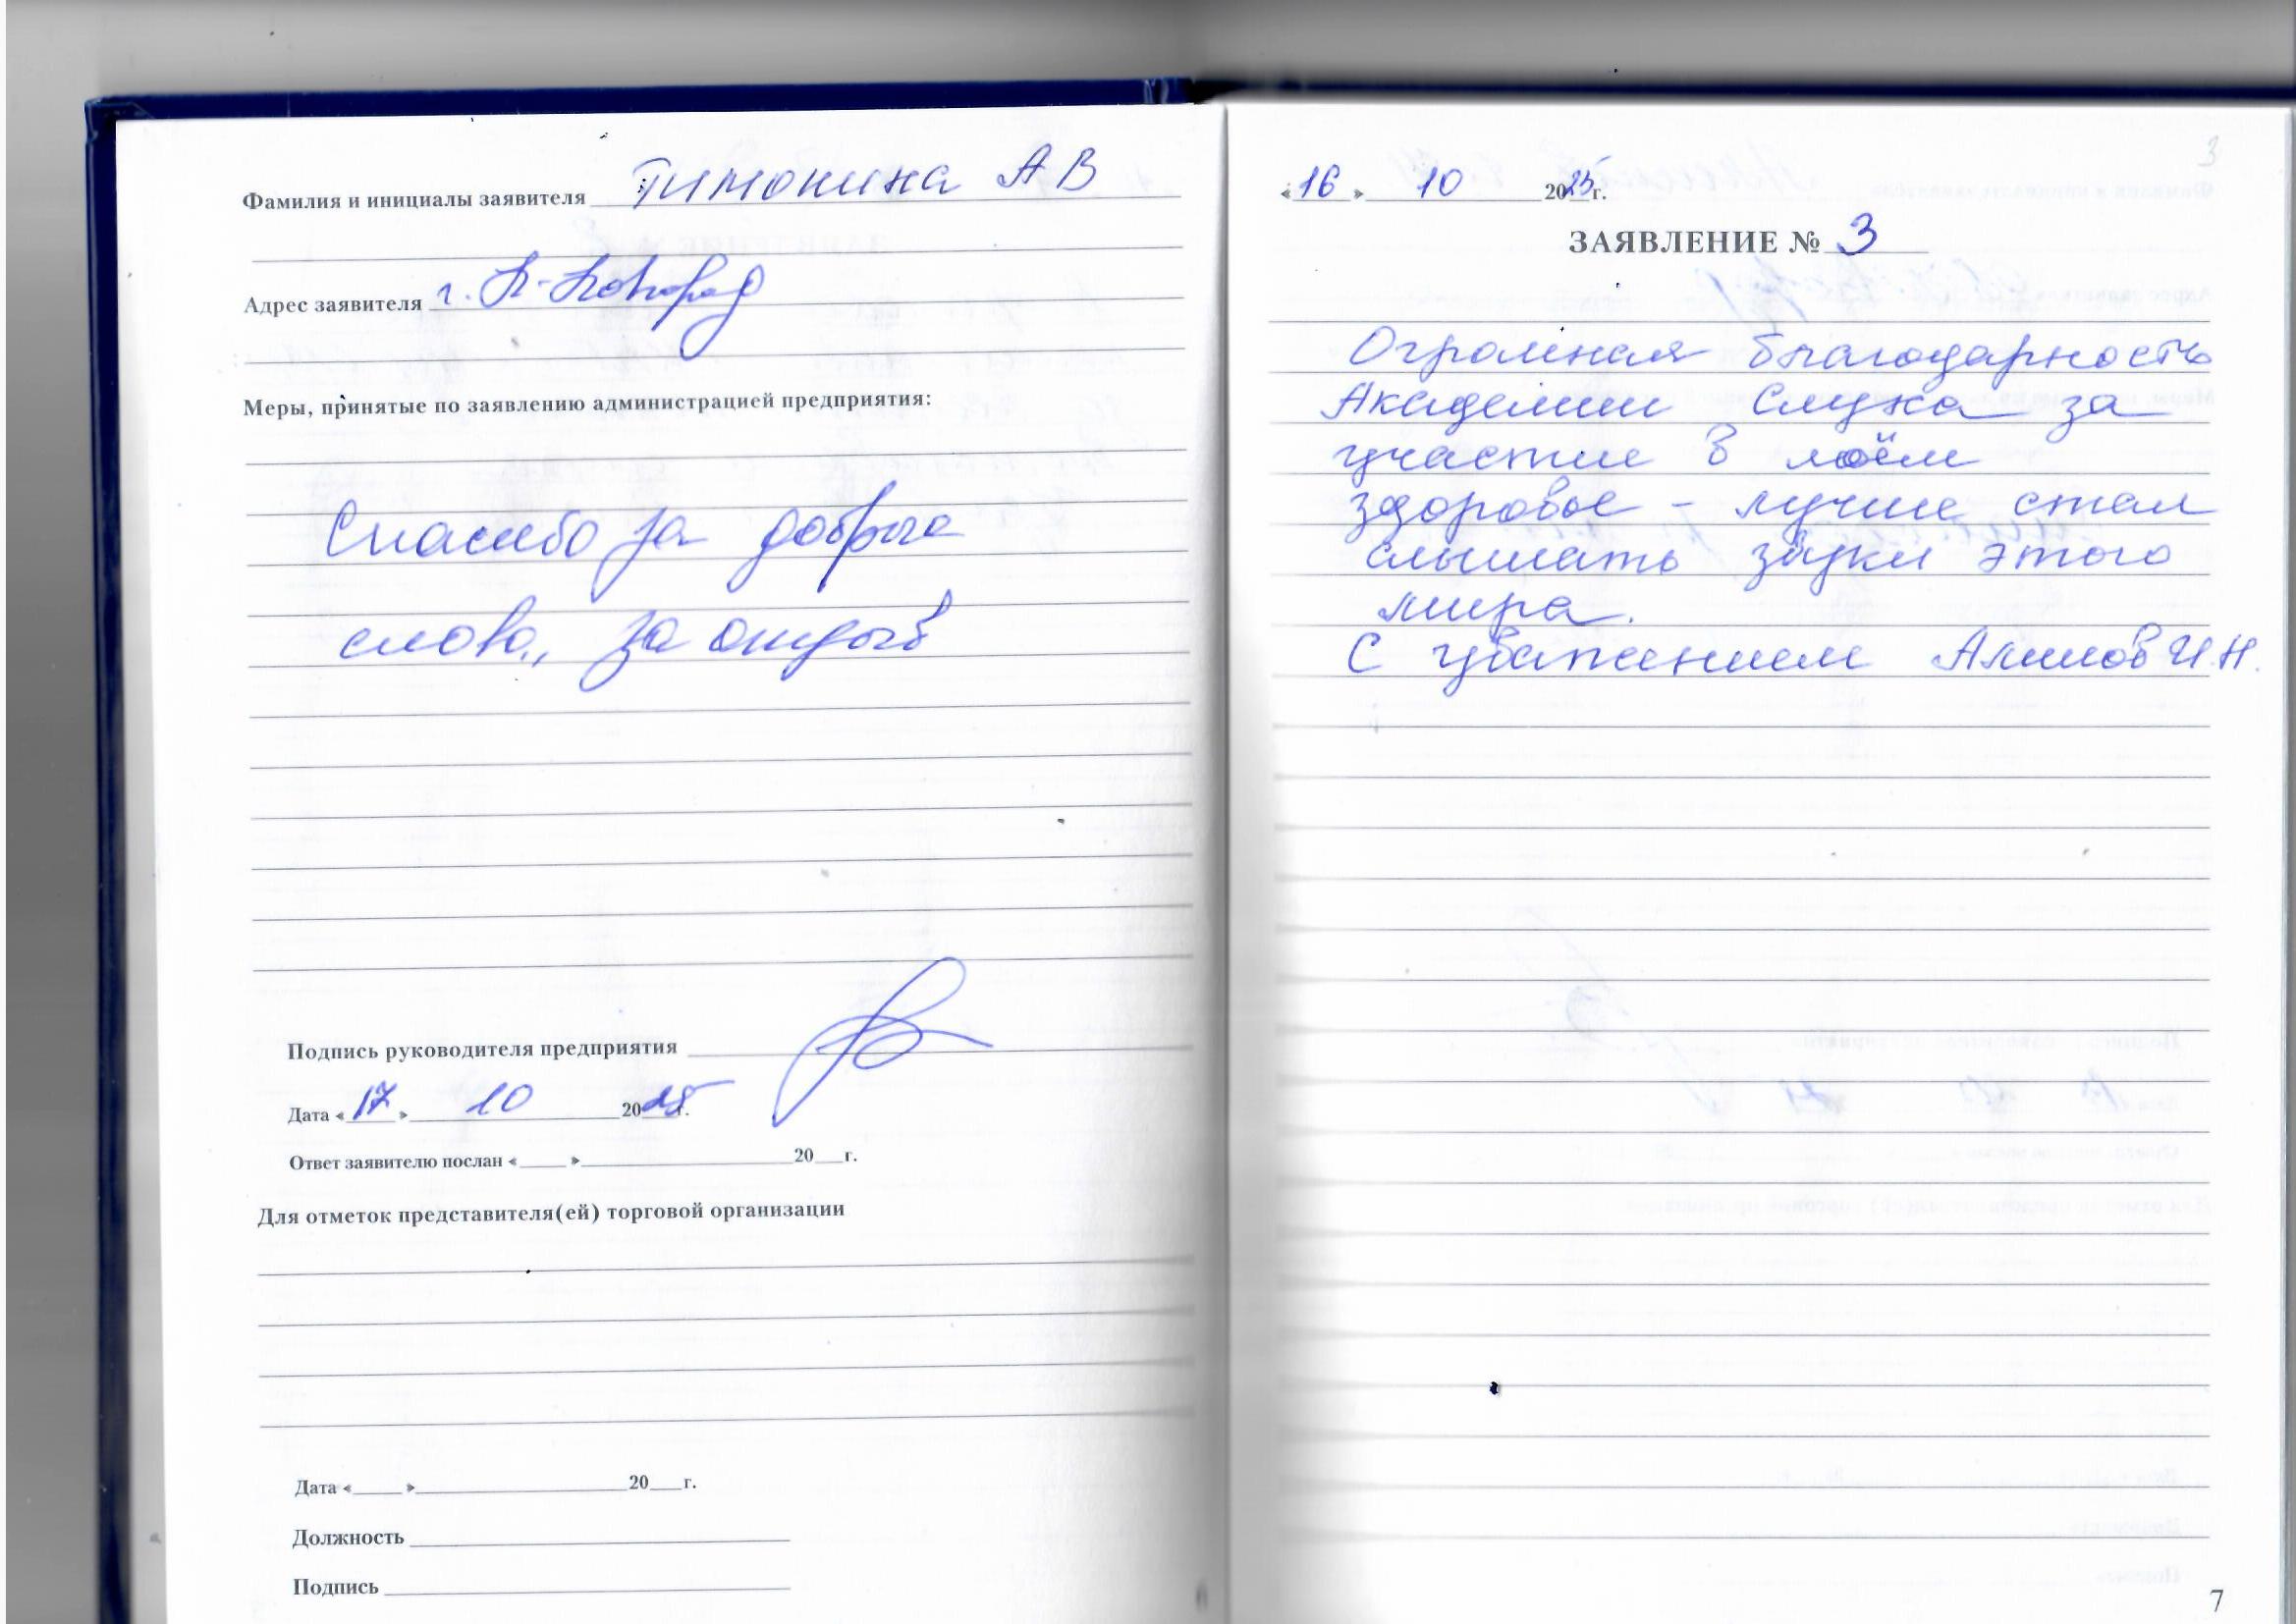 Фамилия и инициалы заявителя Тимонина А В
Адрес заявителя г. Н-Новгород
Меры, принятые по заявлению администрацией предприятия:
Спасибо за добрые
слова, за отзыв
Подпись руководителя предприятия
Дата « 17 » 10 2025 г.
Ответ заявителю послан « » 20 г.
Для отметок представителя(ей) торговой организации
Дата « » 20 г.
Должность
Подпись
3
« 16 » 10 2025 г.
ЗАЯВЛЕНИЕ № 3
Огромная благодарность
Академии Слуха за
участие в моём
здоровье - лучше стал
слышать звуки этого
мира.
С уважением Алимов И.Н.
7